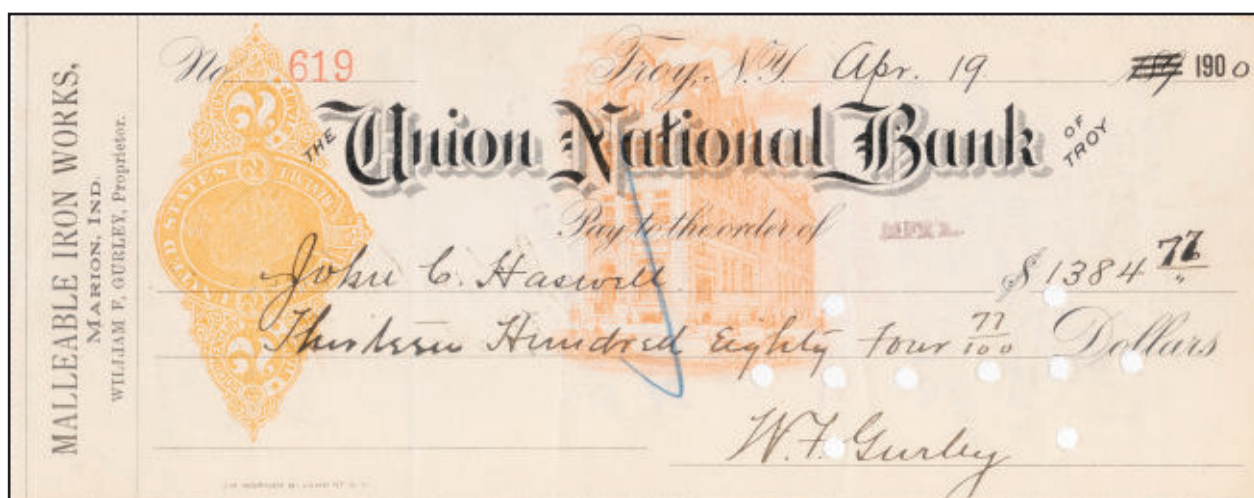 MALLEABLE IRON WORKS,
MARION, IND.
WILLIAM F. GURLEY, Proprietor.
No 619
Troy, N.Y. Apr. 19 189 1900
THE Union National Bank OF TROY
UNITED STATES
Pay to the order of
John C. Haswell $ 1384 77/"
Thirteen Hundred Eighty four 77/100 Dollars
W. F. Gurley